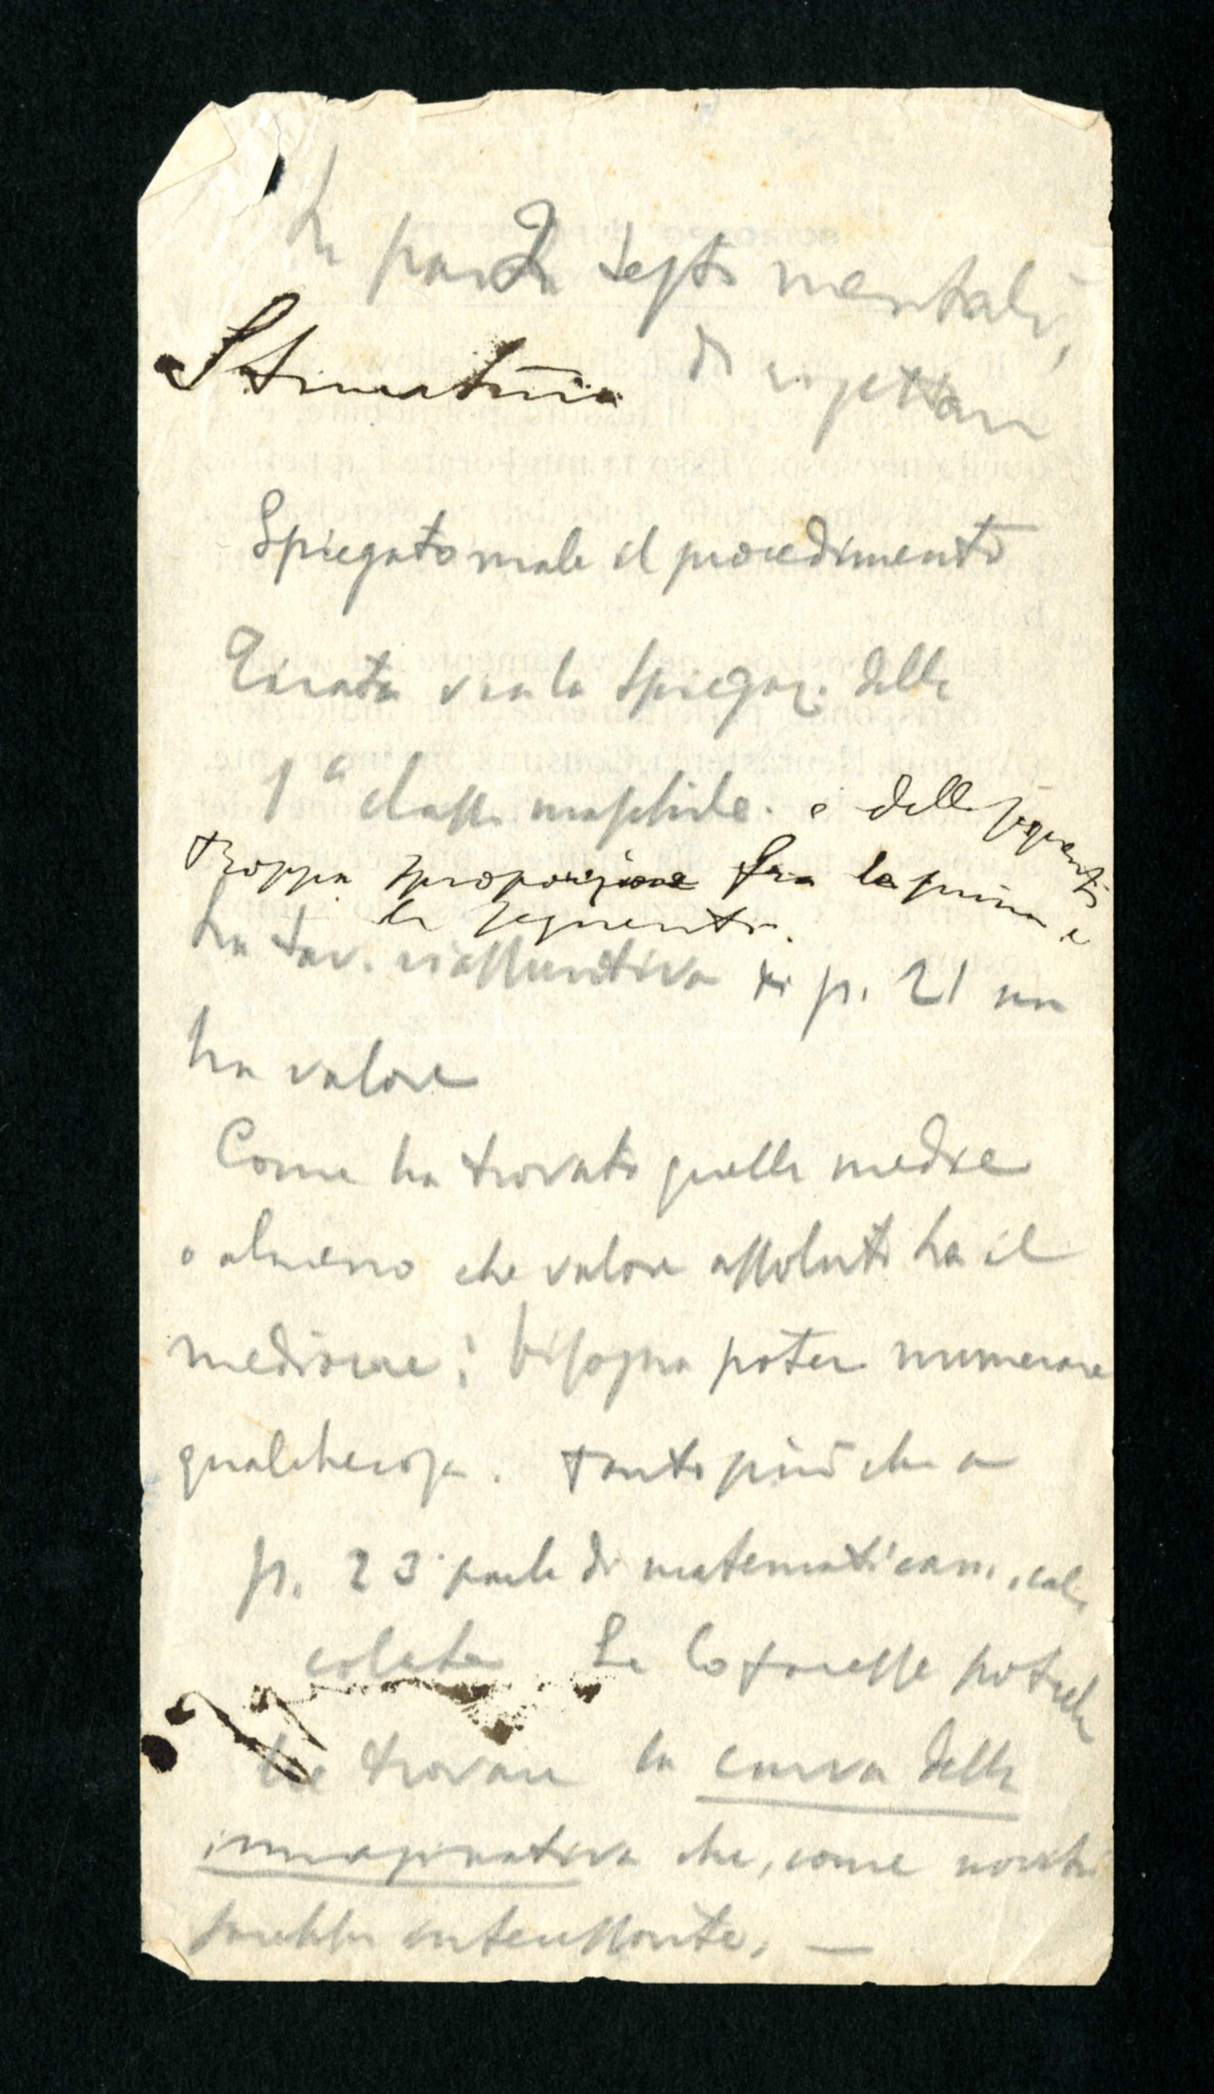 La parola tests mentali,
di rigettare
Spiegato male il procedimento
Tirata via la spiegaz. della
1ª classe maschile. e delle seguenti
troppa sproporzione fra la prima e
le seguenti.
La tav. riassuntiva di p. 21 non
ha valore
Come ha trovato quelle medie
o almeno che valore assoluto ha il
mediocre; bisogna poter numerare
qualchecosa. tanto più che a
p. 23 parla di matematicam. cal-
colata Se lo facesse potreb-
be trovare la curva della
immaginativa che, come novità
sarebbe interessante. —